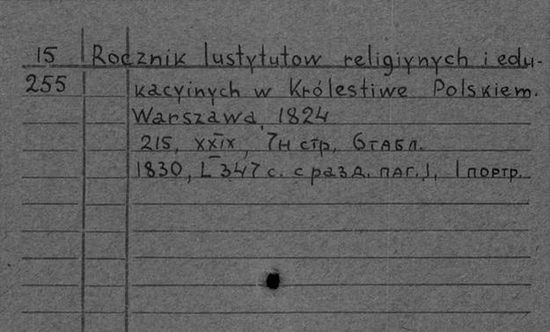 15 Rocznik Iustytutow religiynych i edu-
255 kacyinych w Królestiwe Polskiem.
Warszawa, 1824
215, XXIX, 7н стр, 6табл.
1830, [347 с. с разд. паг.], 1 портр.